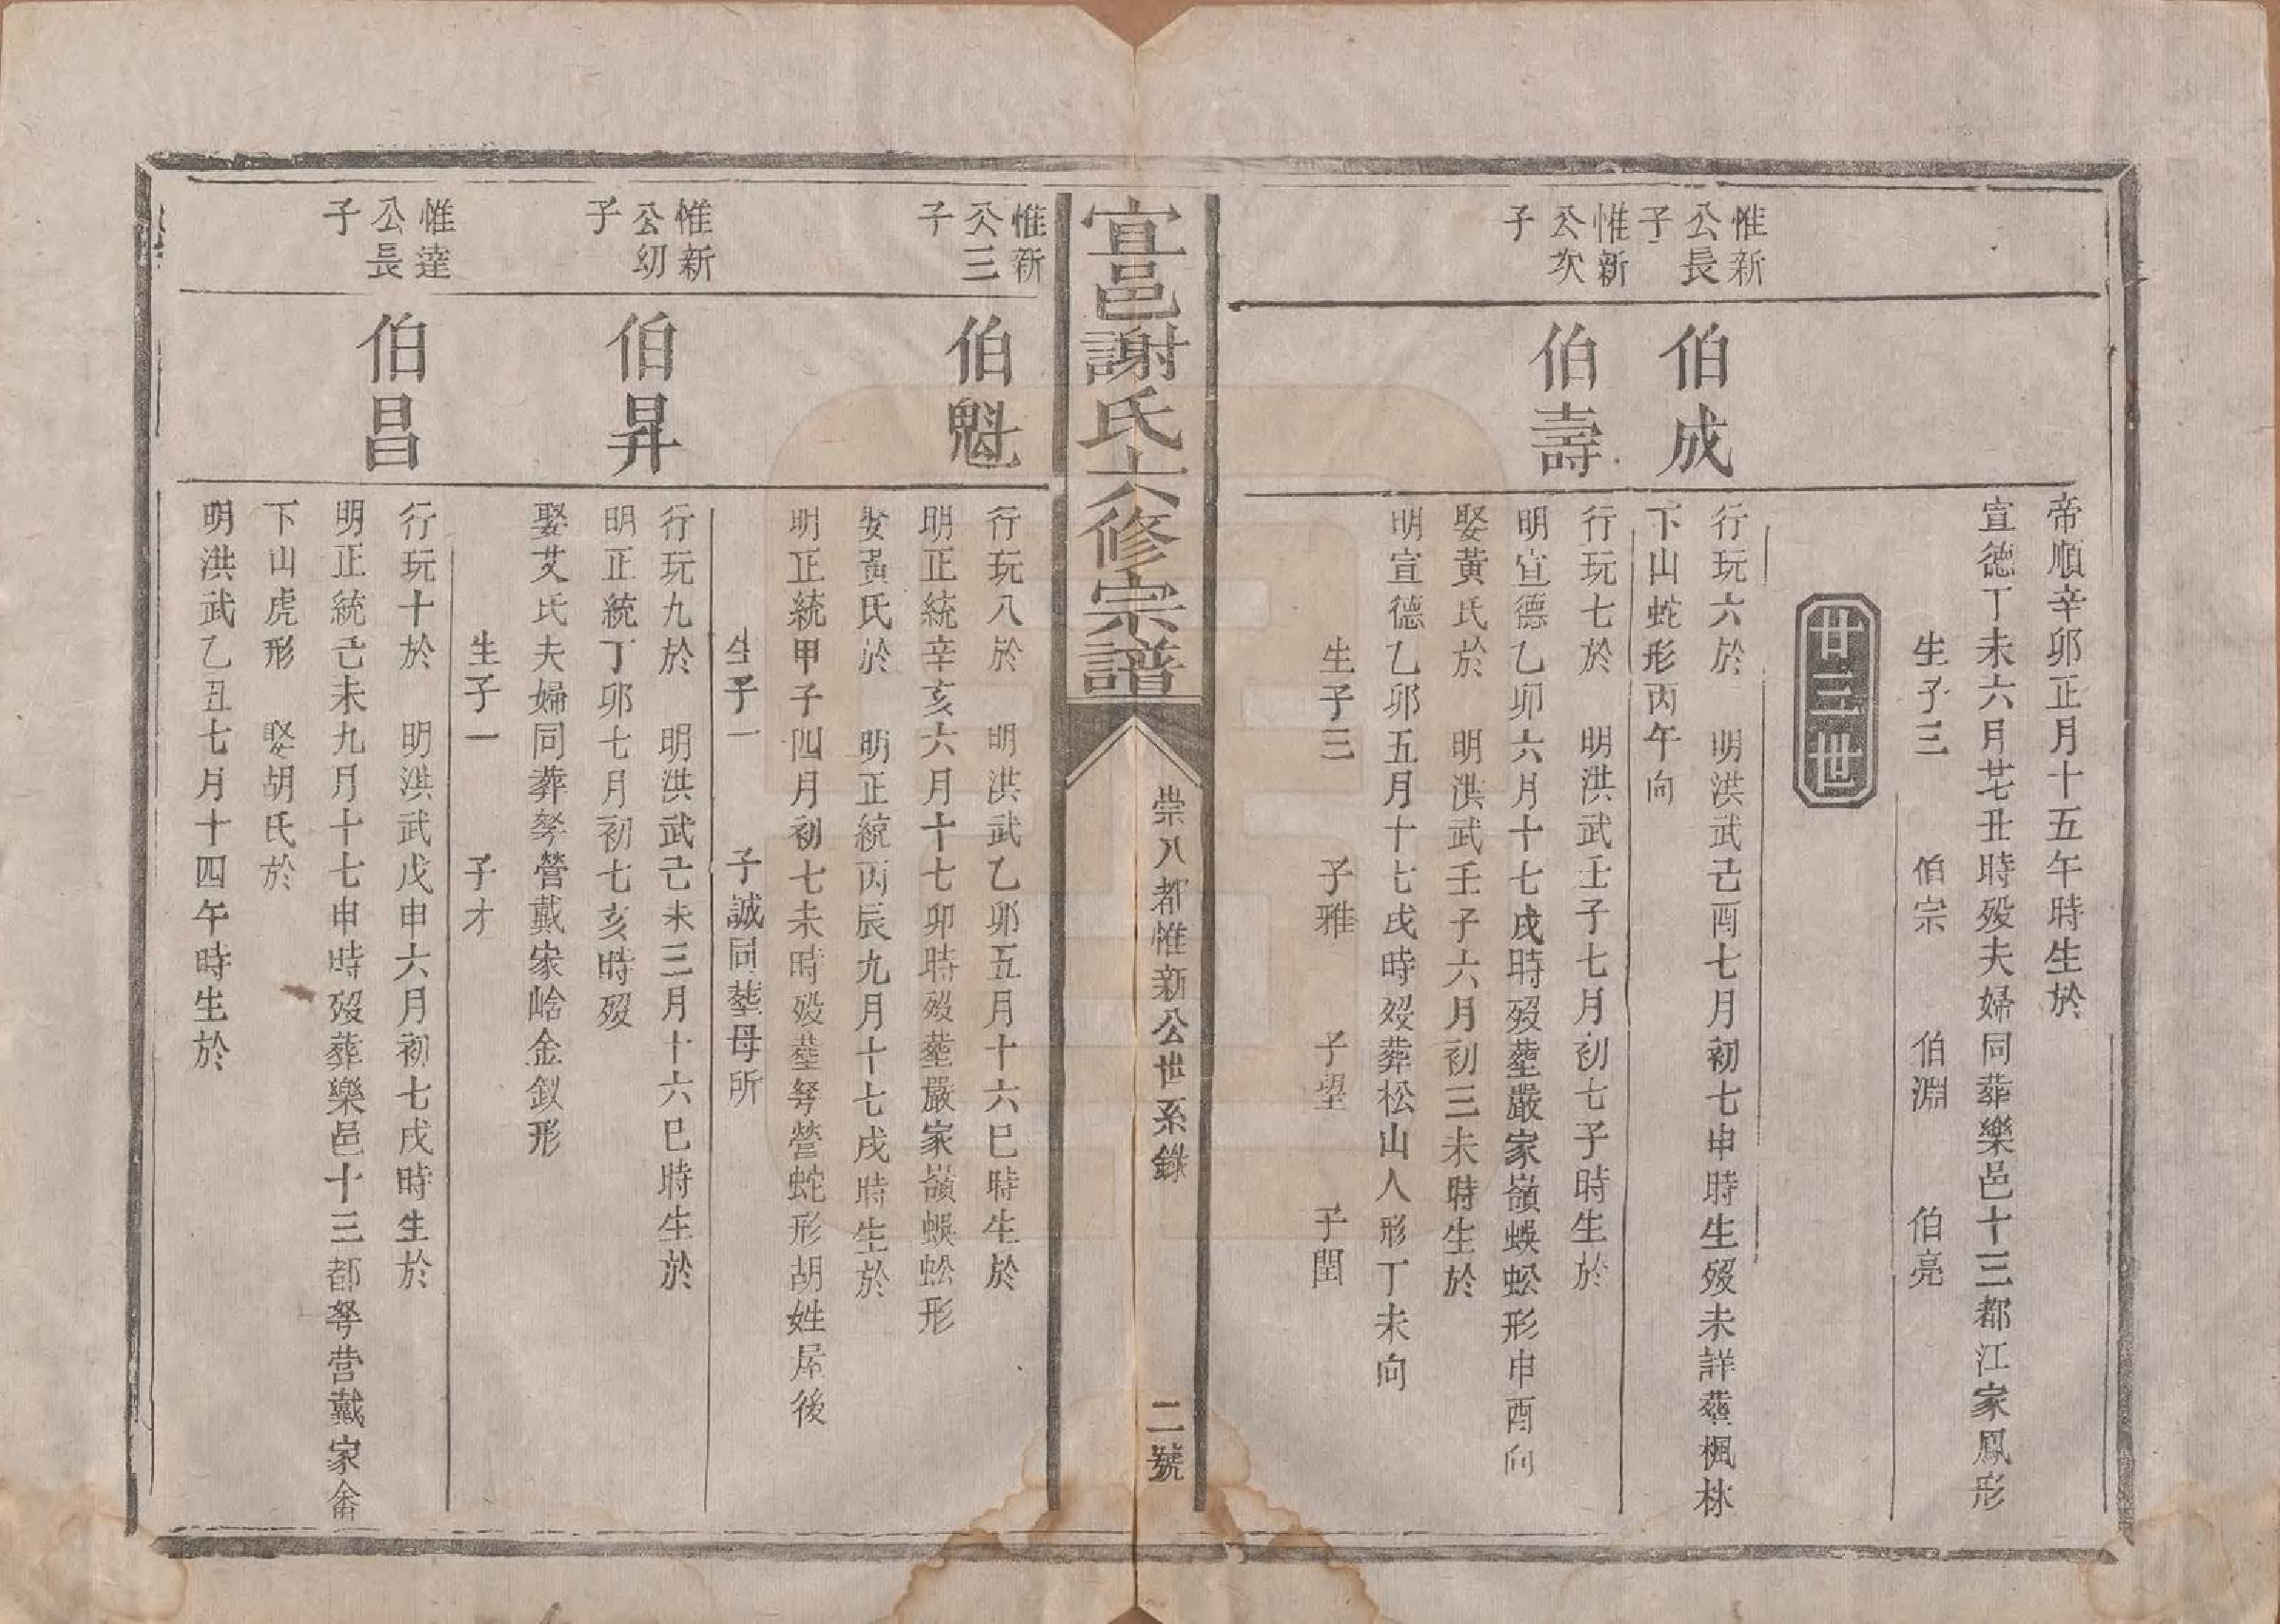 帝順辛卯正月十五午時生於
宣德丁未六月芼丑時殁夫婦同葬樂邑十三都江家鳳形
生子三　伯宗　伯淵　伯亮
廿三世
惟新公長子
伯成
行玩六於　明洪武己酉七月初七申時生殁未詳葬楓林
下山蛇形丙午向
惟新公次子
伯壽
行玩七於　明洪武壬子七月初七子時生於
明宣德乙卯六月十七戌時殁塟嚴家嶺蜈蚣形申酉向
娶黃氏於　明洪武壬子六月初三未時生於
明宣德乙卯五月十七戌時殁葬松山人形丁未向
生子三　子雅　子望　子閏
宜邑謝氏六修宗譜
崇八都惟新公世系錄
二號
惟新公三子
伯魁
行玩八於　明洪武乙卯五月十六巳時生於
明正統辛亥六月十七卯時殁塟嚴家嶺蜈蚣形
娶黃氏於　明正統丙辰九月十七戌時生於
明正統甲子四月初七未時殁塟營蛇形胡姓屋後
生子一　子誠同塟母所
惟新公幼子
伯昇
行玩九於　明洪武己未三月十六巳時生於
明正統丁卯七月初七亥時殁
娶艾氏夫婦同葬營戴家峆金釵形
生子一　子才
惟達公長子
伯昌
行玩十於　明洪武戊申六月初七戌時生於
明正統己未九月十七申時殁葬樂邑十三都營戴家
下山虎形　娶胡氏於
明洪武乙丑七月十四午時生於